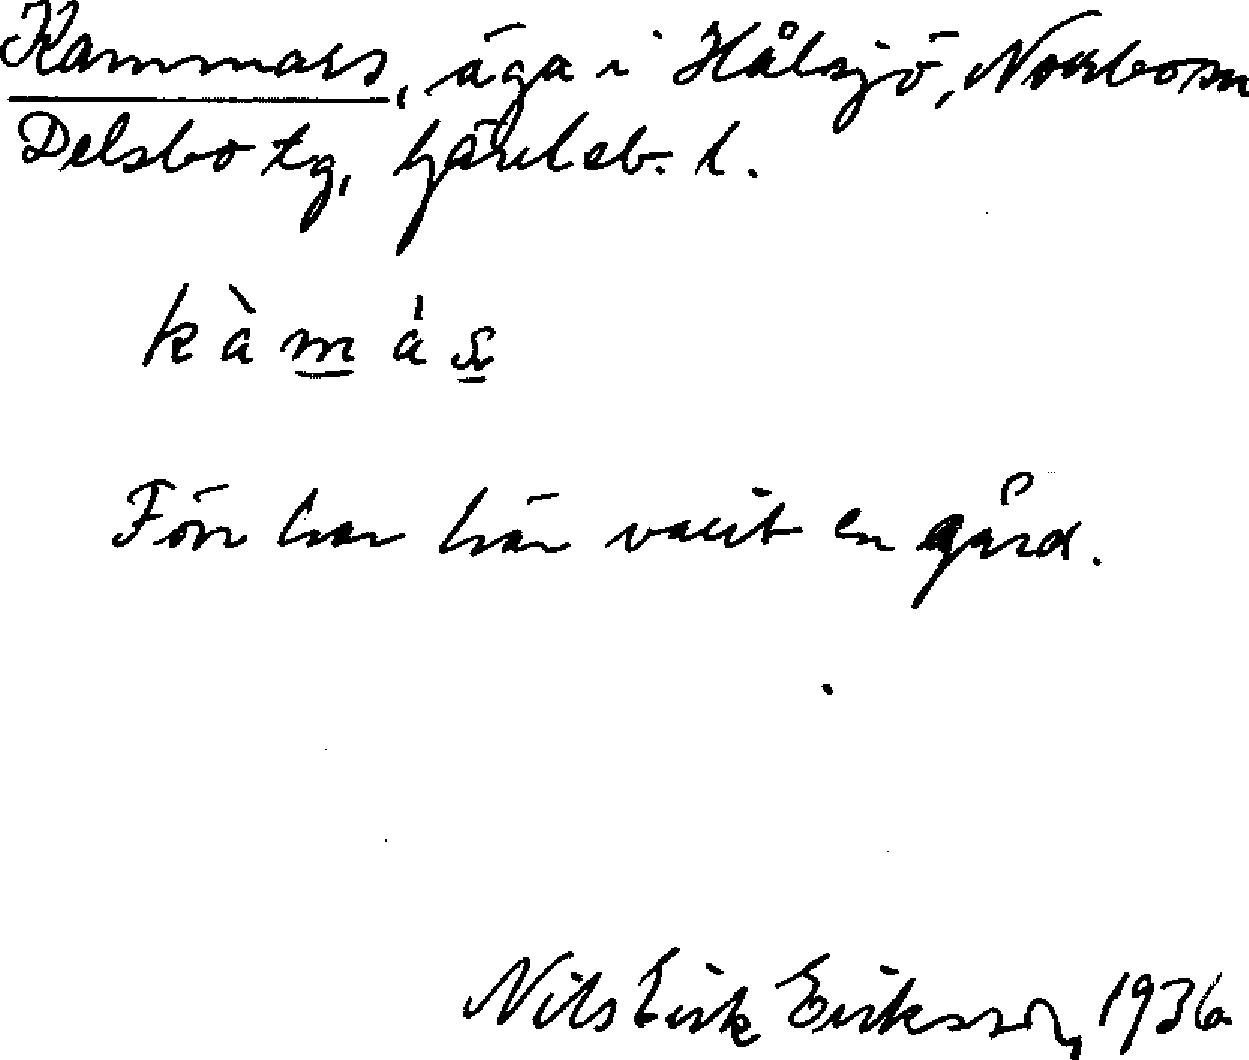 Kammars, äga i Hålsjö, Norrbo sn
Delsbo tg, Gävleb. l.
kàmás
Förr har här varit en gård.
Nils Erik Eriksson, 1936